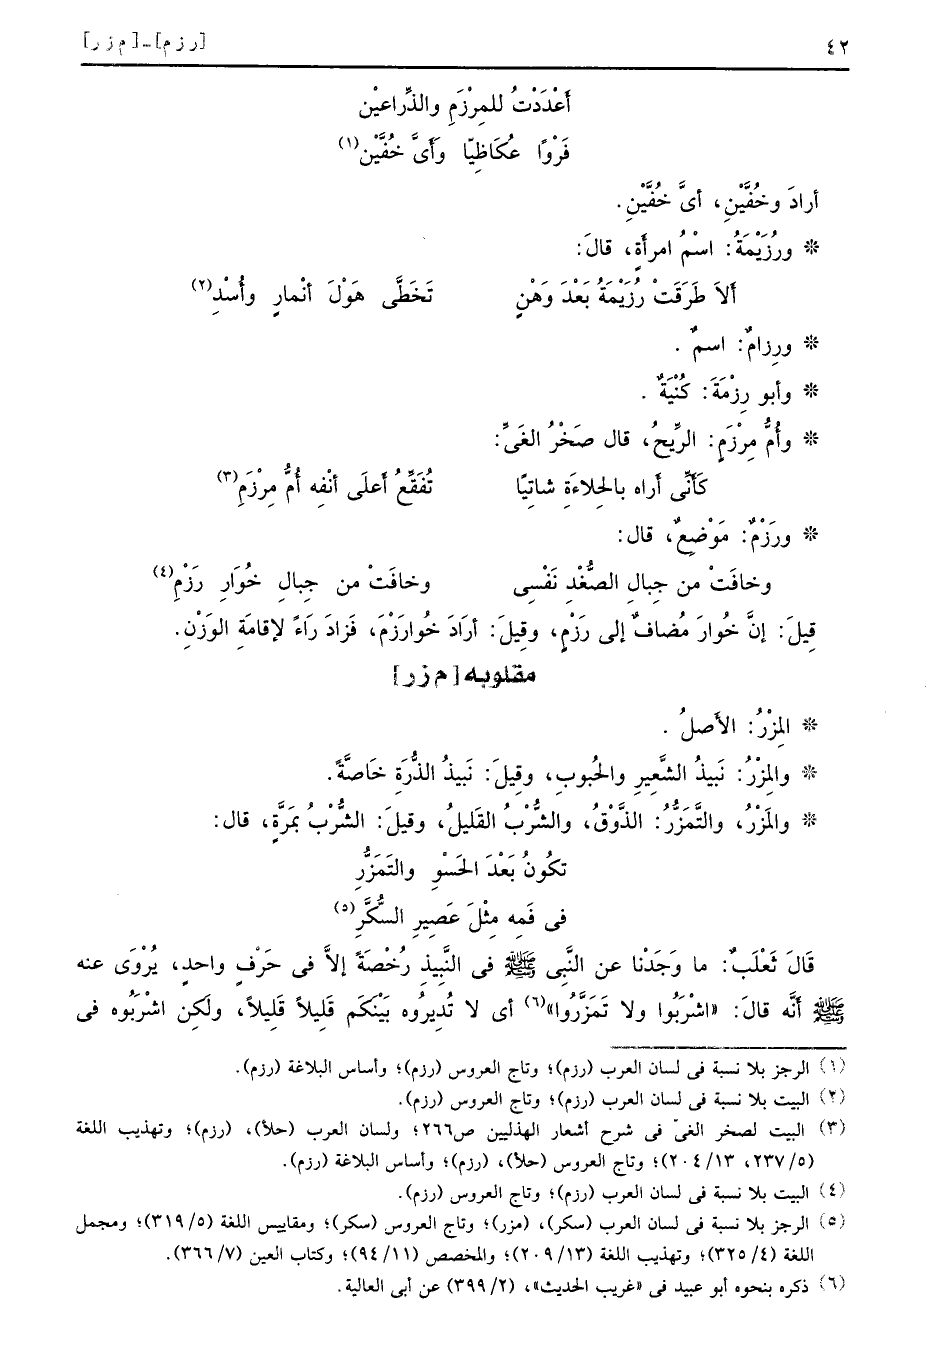 ٤٢ [رزم]-[مزر]
أَعْدَدْتُ للمِرْزَمِ والذِّراعيْن
فَرْوًا عُكَاظِيّا وَأَىَّ خُفَّيْن(١)
أرادَ وخُفَّيْنِ، أىَّ خُفَّيْنِ.
* ورُزَيْمَةُ: اسْمُ امرأةٍ، قالَ:
ألاَ طَرَقَتْ رُزَيمَةُ بَعْدَ وَهْنٍ تَخَطَّى هَوْلَ أنْمارٍ وأُسْدِ(٢)
* ورِزامٌ: اسمٌ.
* وأبو رِزْمَةَ: كُنْيَةٌ.
* وأُمُّ مِرْزَمٍ: الرِّيحُ، قال صَخْرُ الغَىِّ:
كَأَنِّى أراه بالحِلاءَةِ شاتِيًا تُفَقِّعُ أَعلَى أنْفِه أُمُّ مِرْزَمِ(٣)
* ورَزْمٌ: مَوْضِعٌ، قال:
وخافَتْ من جبالِ الصُّغْدِ نَفْسِى وخافَتْ من جِبالِ خُوَارِ رَزْمِ(٤)
قِيلَ: إنَّ خُوارَ مُضافٌ إلى رَزْمٍ، وقِيلَ: أرَادَ خُوارَزْمَ، فَزادَ رَاءً لإقامَةِ الوَزْنِ.
مقلوبه [م ز ر]
* المِزْرُ: الأَصلُ.
* والمِزْرُ: نَبيذُ الشَّعيرِ والحُبوبِ، وقيلَ: نَبيذُ الذُّرَةِ خَاصَّةً.
* والمَزْرُ، والتَّمَزُّرُ: الذَّوْقُ، والشُّرْبُ القَليلُ، وقيلَ: الشُّرْبُ بَمَرَّةٍ، قال:
تكُونُ بَعْدَ الحَسْوِ والتَمَزُّرِ
فى فَمِه مِثْلَ عَصِيرِ السُّكَّرِ(٥)
قَالَ ثَعْلَبٌ: ما وَجَدْنا عن النَّبِى ﷺ فى النَّبِيذِ رُخْصَةً إلاَّ فى حَرْفٍ واحدٍ، يُرْوَى عنه
ﷺ أنَّه قالَ: «اشْرَبُوا ولا تَمَزَّرُوا»(٦) أى لا تُدِيرُوه بَيْنَكم قَلِيلاً قَلِيلاً، ولَكِن اشْرَبُوه فى
(١) الرجز بلا نسبة فى لسان العرب (رزم)؛ وتاج العروس (رزم)؛ وأساس البلاغة (رزم).
(٢) البيت بلا نسبة فى لسان العرب (رزم)؛ وتاج العروس (رزم).
(٣) البيت لصخر الغىّ فى شرح أشعار الهذليين ص٢٦٦؛ ولسان العرب (حلأ)، (رزم)؛ وتهذيب اللغة
(٥/ ٢٣٧، ١٣/ ٢٠٤)؛ وتاج العروس (حلأ)، (رزم)؛ وأساس البلاغة (رزم).
(٤) البيت بلا نسبة فى لسان العرب (رزم)؛ وتاج العروس (رزم).
(٥) الرجز بلا نسبة فى لسان العرب (سكر)، (مزر)؛ وتاج العروس (سكر)؛ ومقاييس اللغة (٥/ ٣١٩)؛ ومجمل
اللغة (٤/ ٣٢٥)؛ وتهذيب اللغة (١٣/ ٢٠٩)؛ والمخصص (١١/ ٩٤)؛ وكتاب العين (٧/ ٣٦٦).
(٦) ذكره بنحوه أبو عبيد فى «غريب الحديث»، (٢/ ٣٩٩) عن أبى العالية.